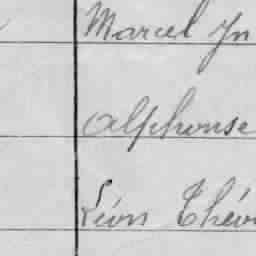 Marcel Jn
Alphonse
Léon Thév